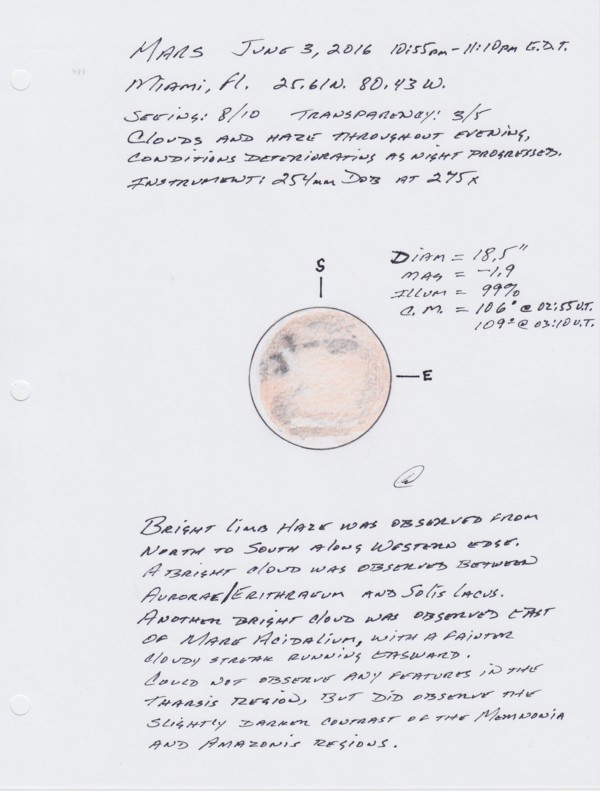 MARS JUNE 3, 2016 10:55pm-11:10pm E.D.T.
MIAMI, Fl. 25.61N. 80.43W.
SEEING: 8/10 TRANSPARENCY: 3/5
CLOUDS AND HAZE THROUGHOUT EVENING,
CONDITIONS DETERIORATING AS NIGHT PROGRESSED.
INSTRUMENT: 254mm DOB AT 275x
DIAM = 18.5"
MAG = -1.9
ILLUM = 99%
C.M. = 106° @ 02:55 U.T.
109° @ 03:10 U.T.
S
E
BRIGHT LIMB HAZE WAS OBSERVED FROM
NORTH TO SOUTH ALONG WESTERN EDGE.
A BRIGHT CLOUD WAS OBSERVED BETWEEN
AURORAE/ERITHRAEUM AND SOLIS LACUS.
ANOTHER BRIGHT CLOUD WAS OBSERVED EAST
OF MARE ACIDALIUM, WITH A FAINTER
CLOUDY STREAK RUNNING EASWARD.
COULD NOT OBSERVE ANY FEATURES IN THE
THARSIS REGION, BUT DID OBSERVE THE
SLIGHTLY DARKER CONTRAST OF THE MEMNONIA
AND AMAZONIS REGIONS.